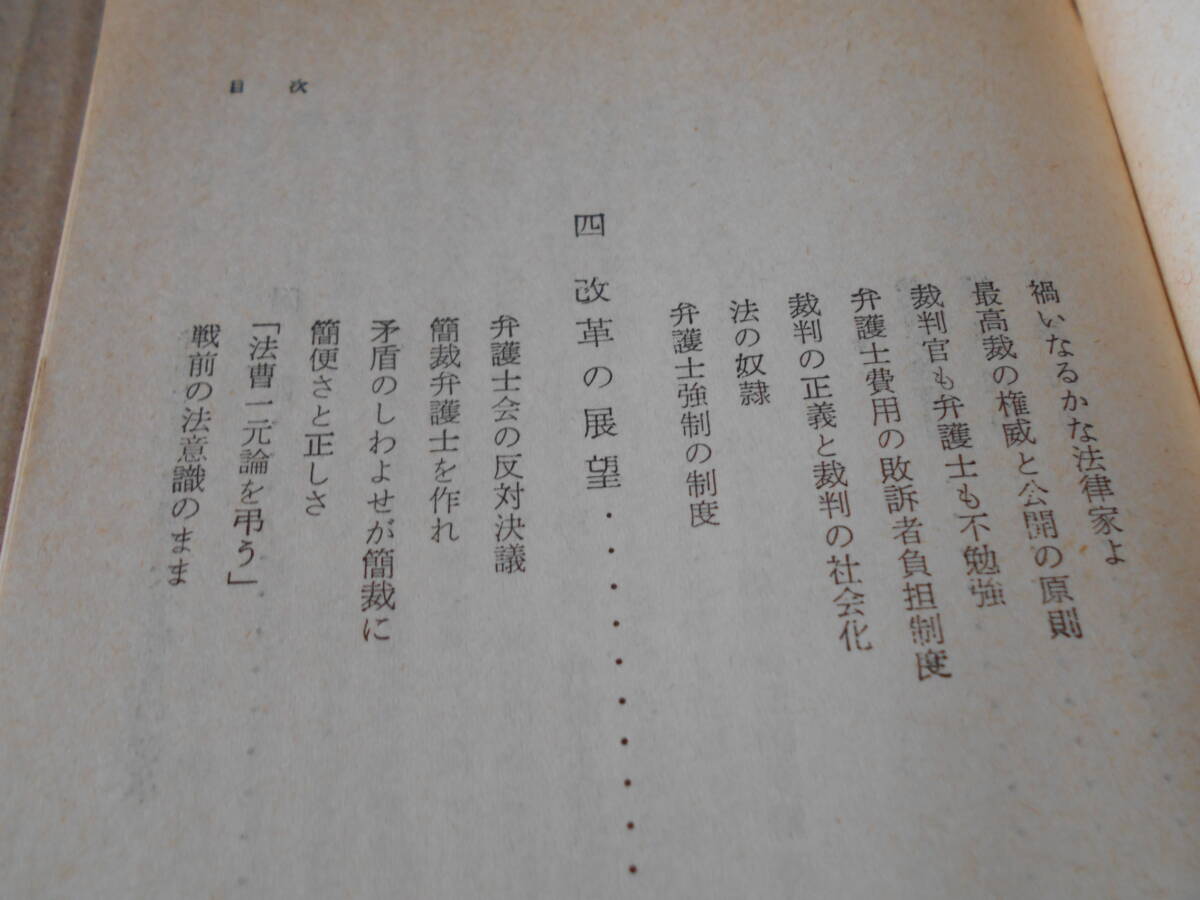 目次
禍いなるかな法律家よ
最高裁の権威と公開の原則
裁判官も弁護士も不勉強
弁護士費用の敗訴者負担制度
裁判の正義と裁判の社会化
法の奴隷
弁護士強制の制度
四 改革の展望・・・・・・・・・・
弁護士会の反対決議
簡裁弁護士を作れ
矛盾のしわよせが簡裁に
簡便さと正しさ
「法曹一元論を弔う」
戦前の法意識のまま